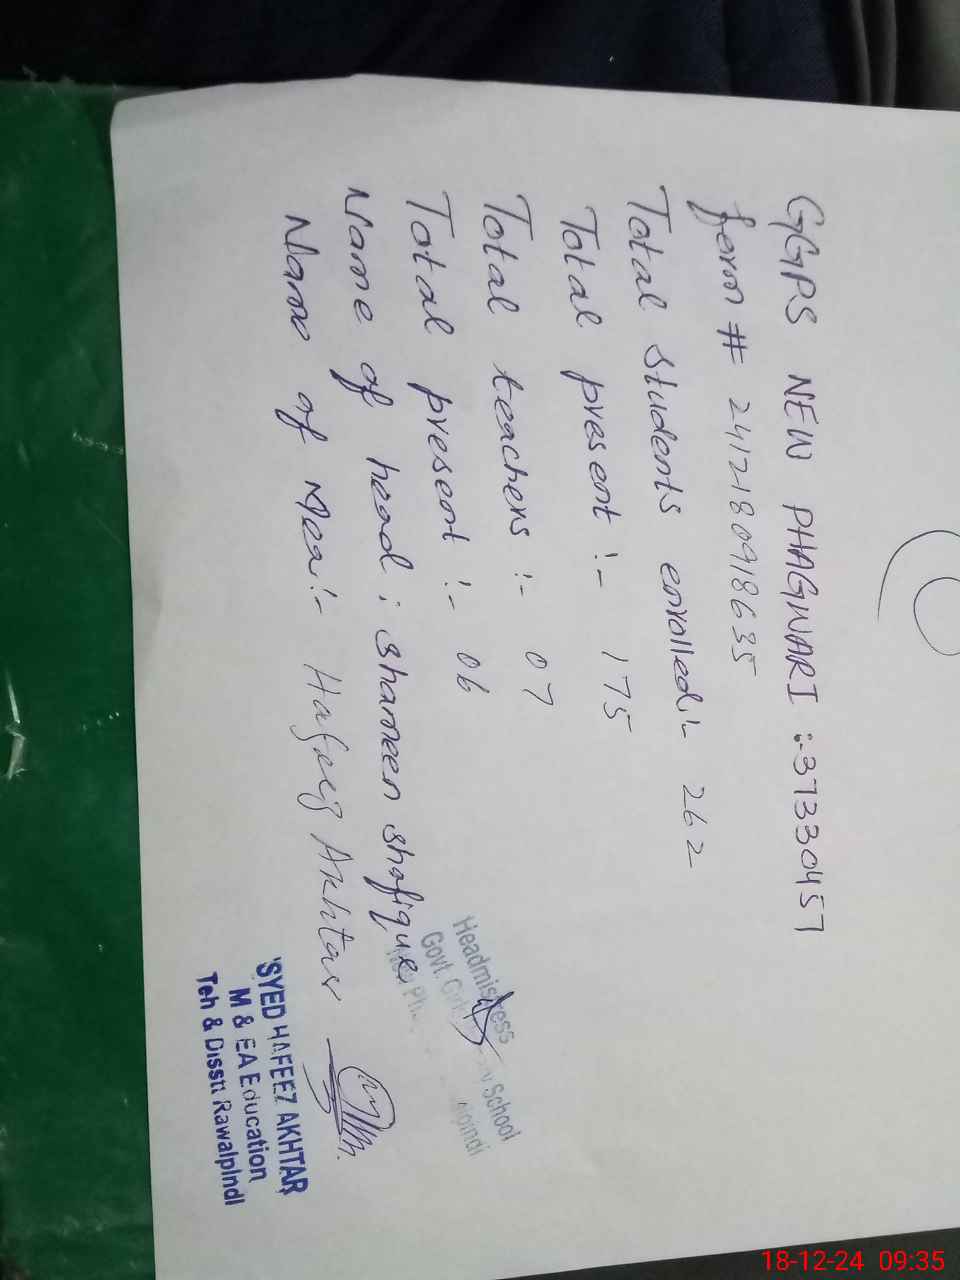 GGPS NEW PHAGWARI :-37330457
form # 2412180918635
Total students enrolled:- 262
Total present :- 175
Total teachers :- 07
Total present :- 06
Name of head : shameen shafique
Name of Mea:- Hafeez Akhtar
Headmistress
Govt. School
SYED HAFEEZ AKHTAR
M & EA Education
Teh & Distt Rawalpindi
18-12-24 09:35